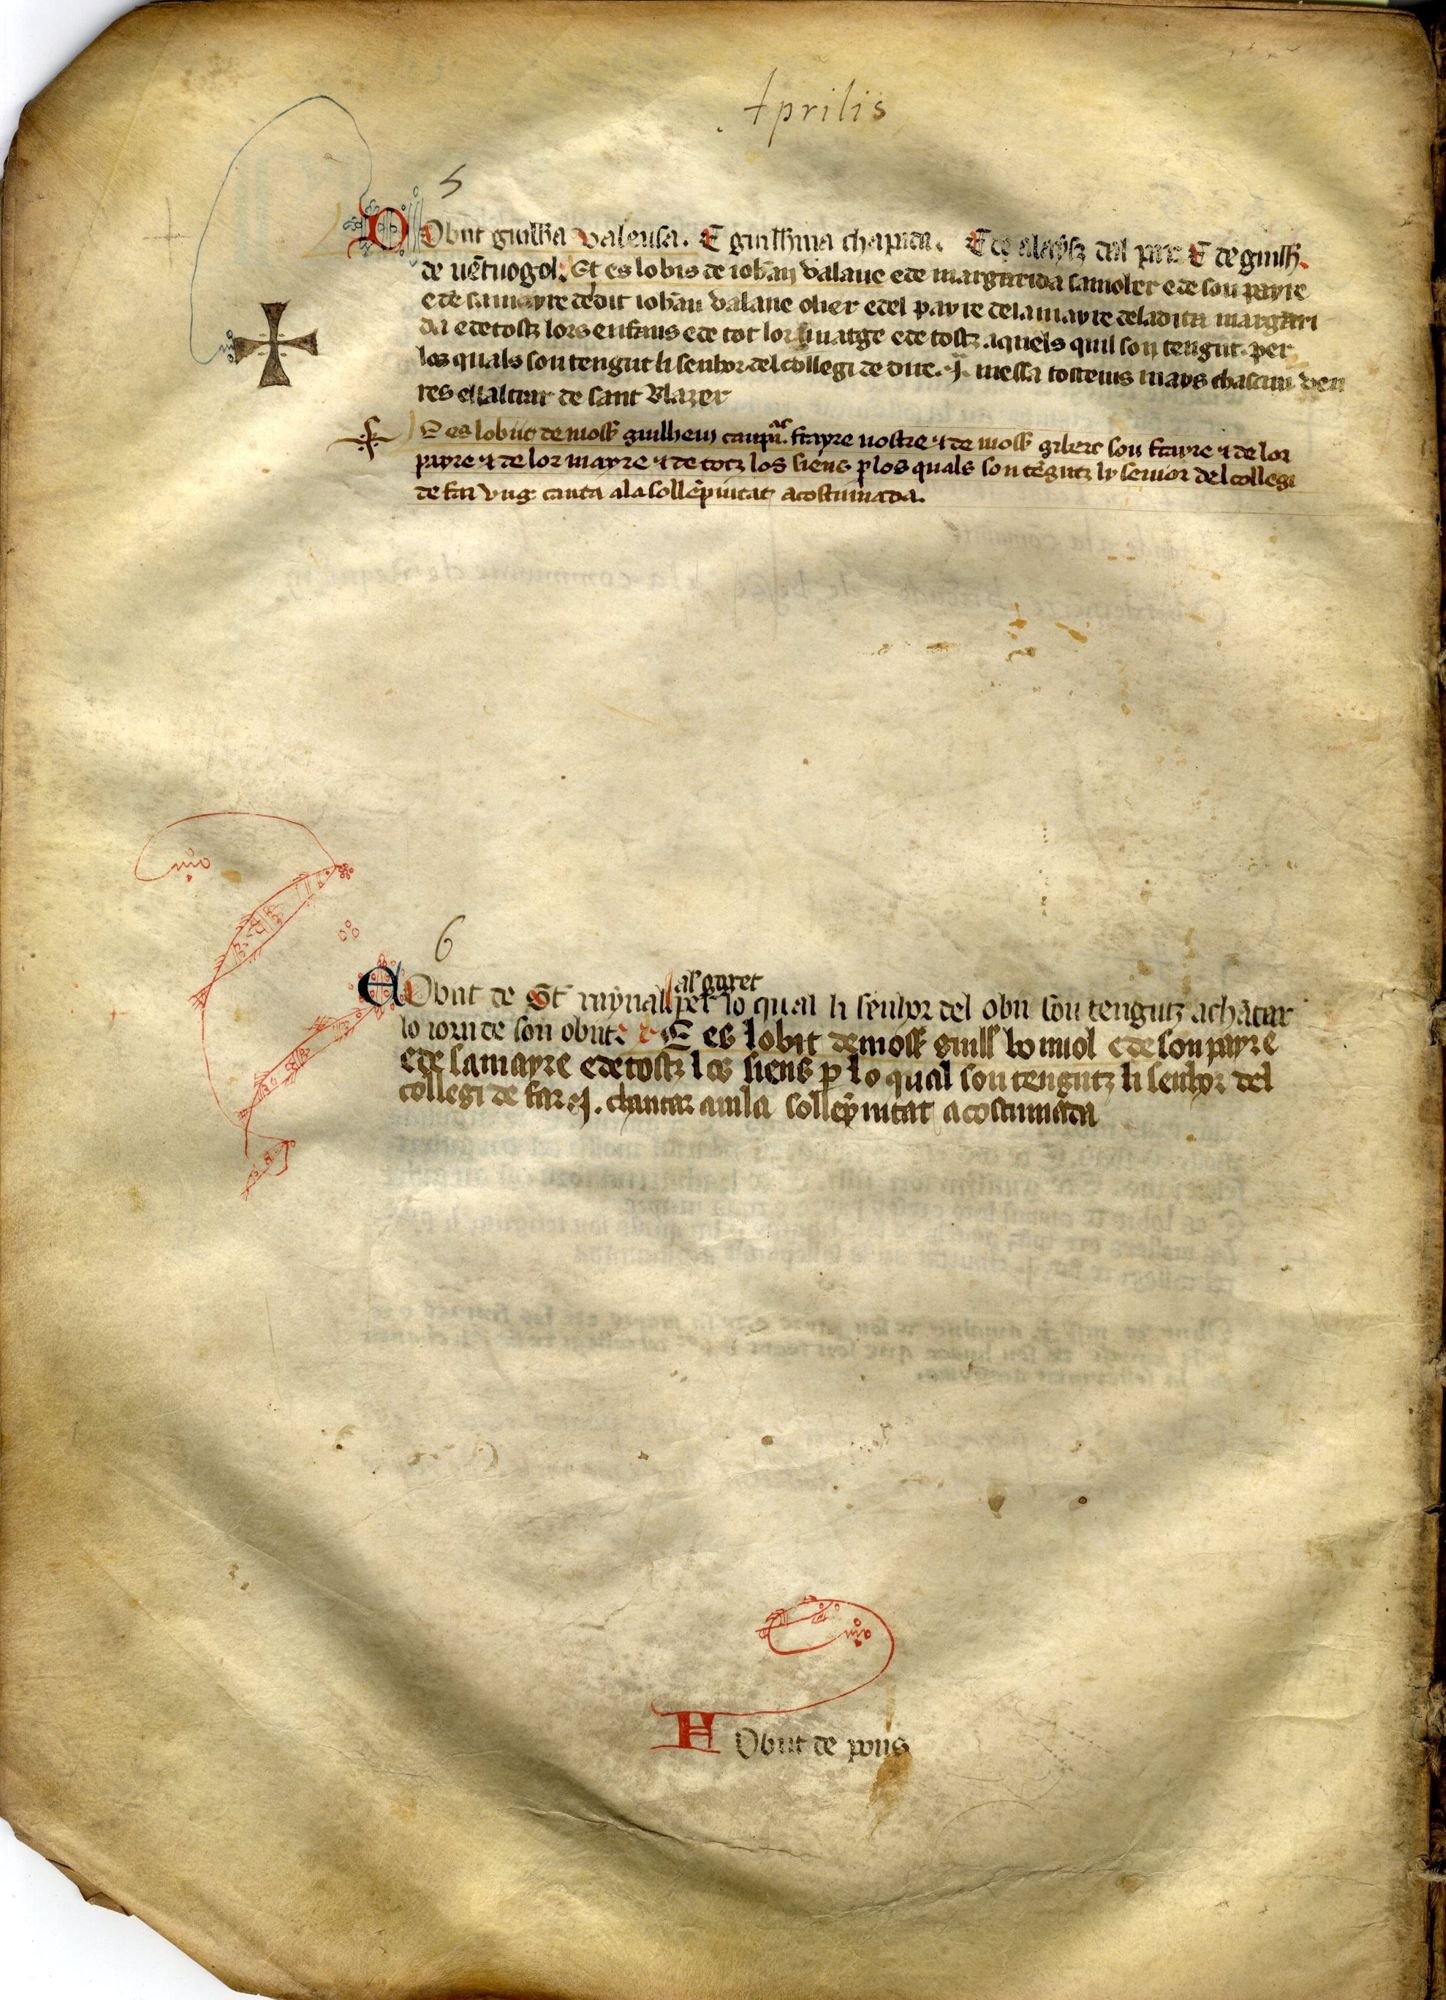 Aprilis
5
D Obiit guillma valensa. E guillmina chapita. E de alaysz dal prat E de guillm
de ventuogol. Et es lobis de iohan valaue e de margarida sa molier e de son payre
e de sa mayre de dit iohan valaue olier e del payre de la mayre de la dita margari
da e de tostz lors enfans e de tot lor linatge e de tostz aquels quil son tengut. per
los quals son tengut li senhor del collegi de dire .j. messa tostems mays chascun ven
res el laltar de sant Blazer
E es lobiit de moss guilhem frayre nostre & de moss gibert son frayre & de lor
payre & de lor mayre & de totz los siens p los quals son tegutz ly senior del collegi
de far ung canta a la sollepnitat acostumada.
6
al garet
A Obiit de St raynal per lo qual li senhor del obii son tengutz a chatar
lo iorn de son obiit. E es lobit de moss guill bo miol e de son payre
e de sa mayre e de tostz los siens p lo qual son tengutz li senhor del
collegi de far .j. chantar am la sollepnitat acostumada
H Obiit de pons